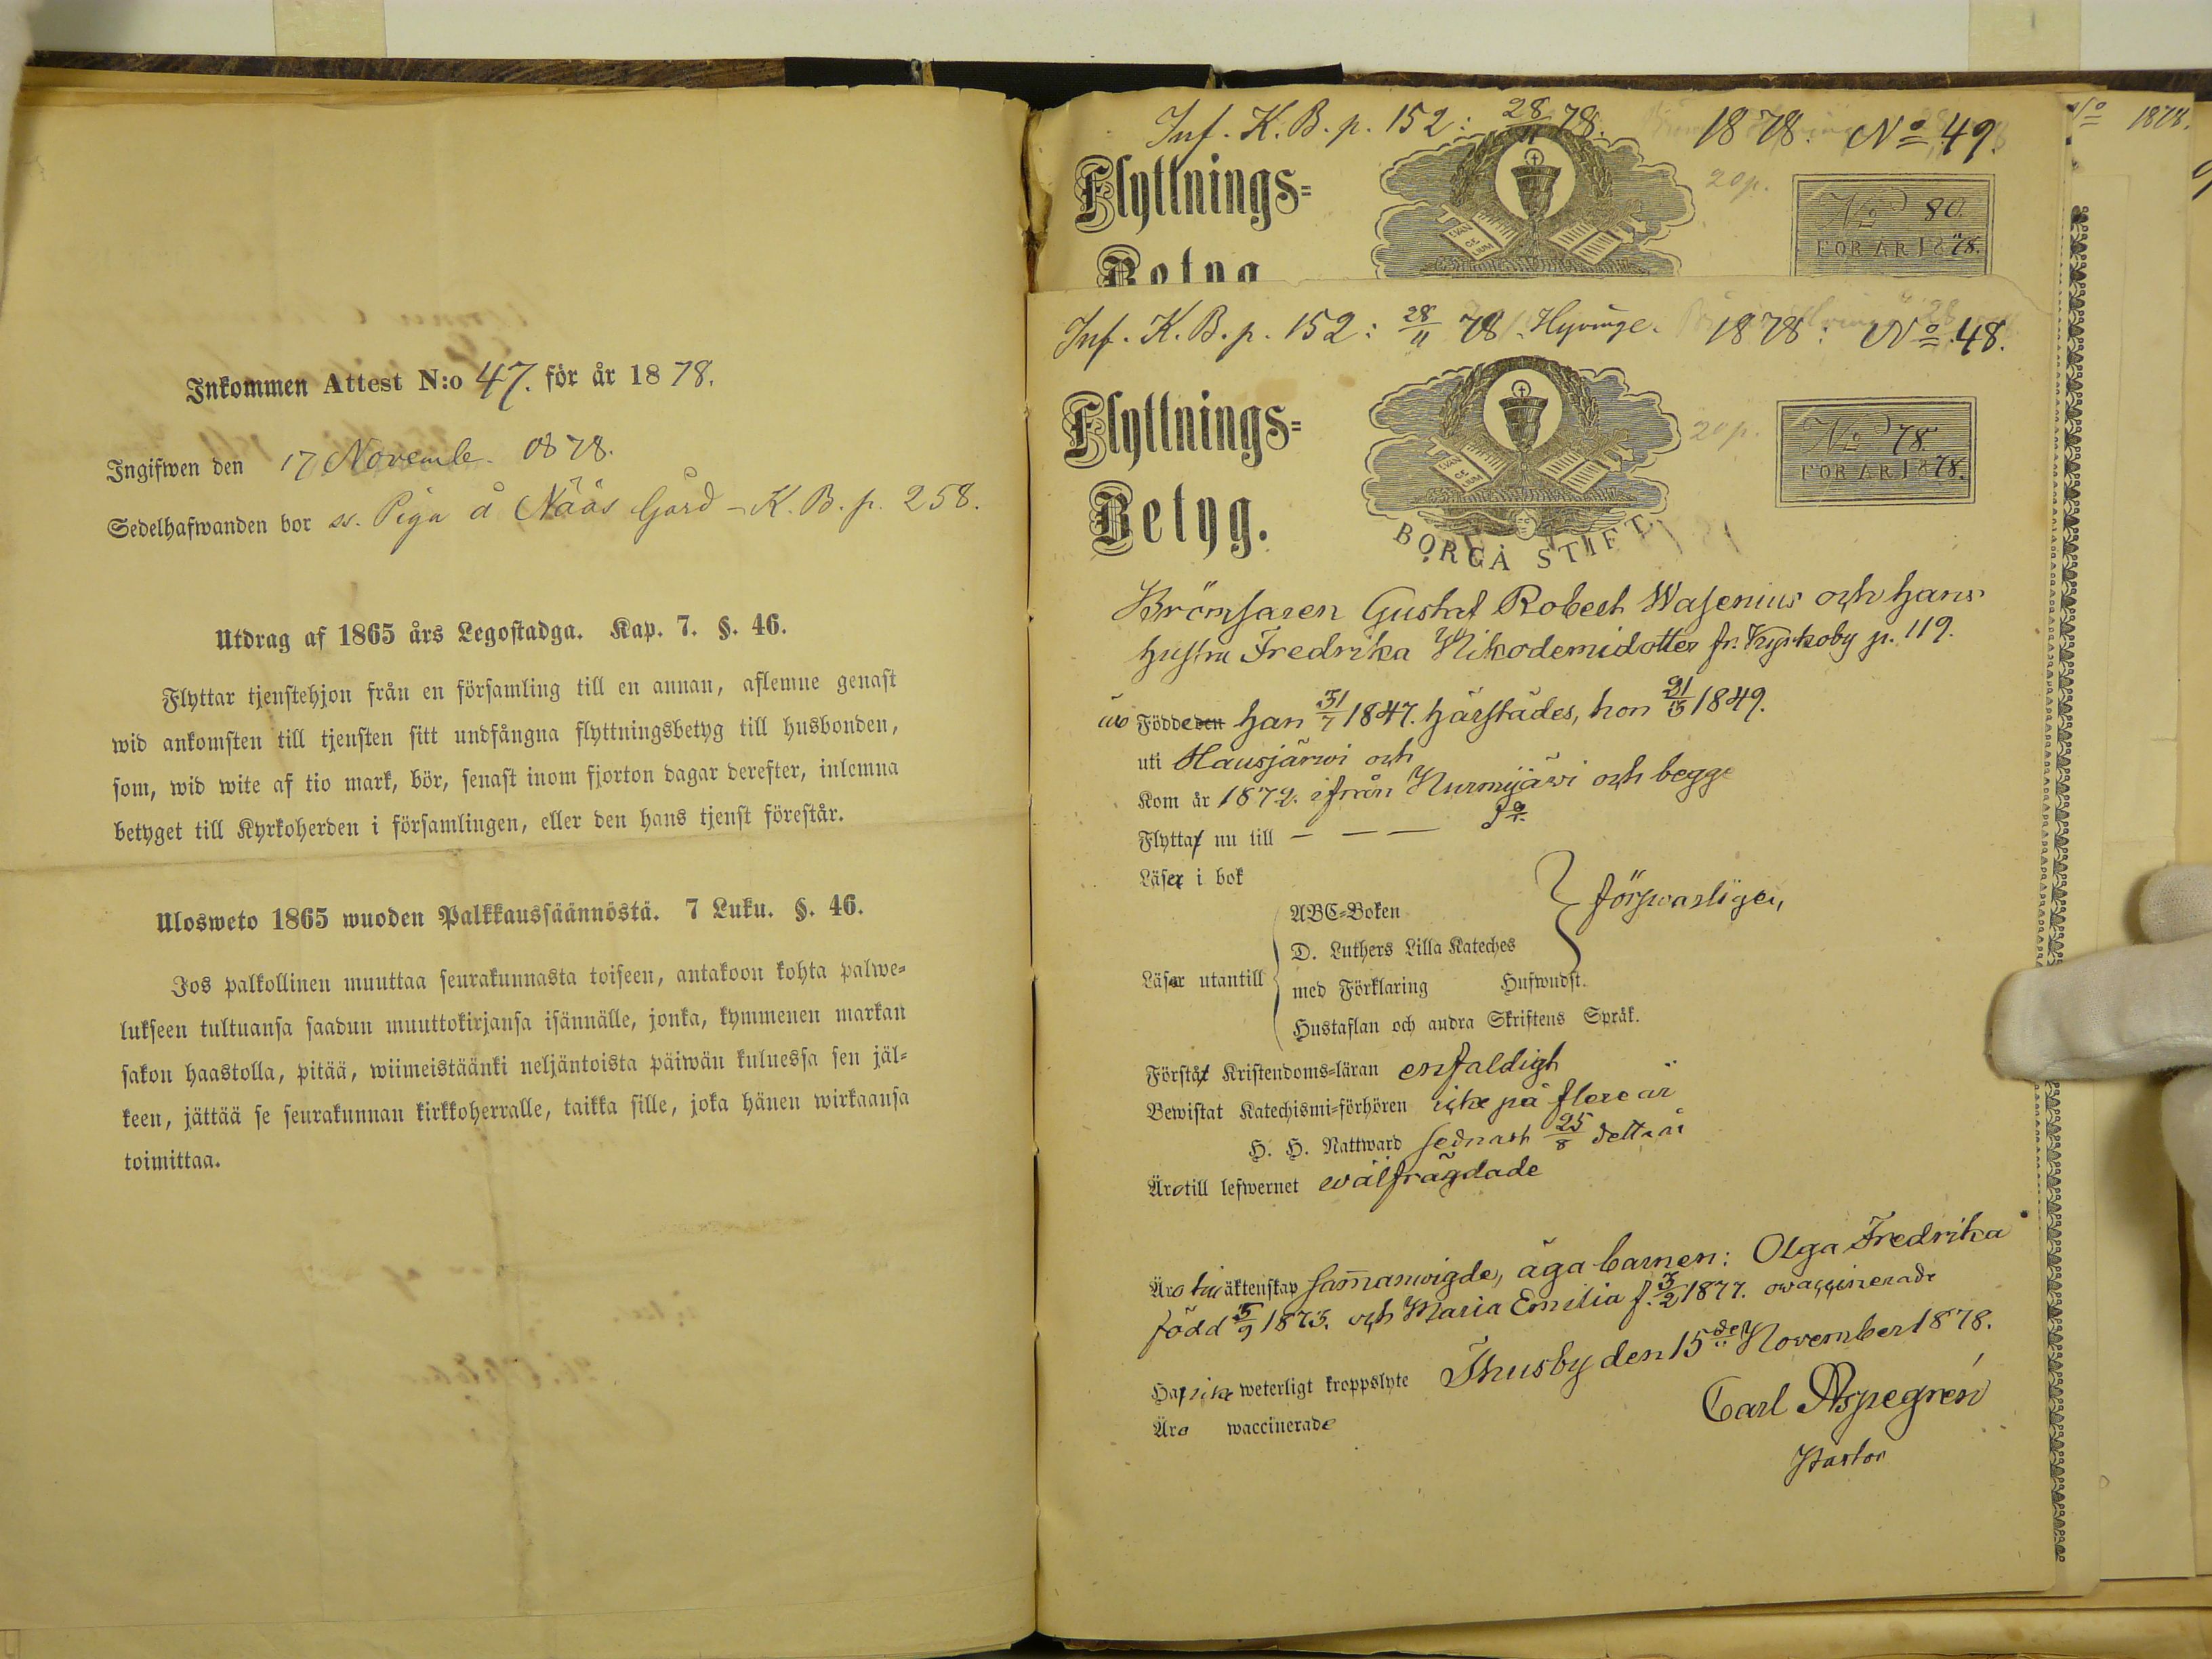 Inkommen Attest N:o 47. för år 1878.
Ingifwen den 17 Novemb. 1878.
Sedelhafwanden bor ss. Piga å Nääs Gård - K. B. p. 258.
Utdrag af 1865 års Legostadga. Kap. 7. §. 46.
Flyttar tjenstehjon från en församling till en annan, aflemne genast
wid ankomsten till tjensten sitt undfångna flyttningsbetyg till husbonden,
som, wid wite af tio mark, bör, senast inom fjorton dagar derefter, inlemna
betyget till Kyrkoherden i församlingen, eller den hans tjenst förestår.
Ulosweto 1865 wuoden Palkkaussäännöstä. 7 Luku. §. 46.
Jos palkollinen muuttaa seurakunnasta toiseen, antakoon kohta palwe=
lukseen tultuansa saadun muuttokirjansa isännälle, jonka, kymmenen markan
sakon haastolla, pitää, wiimeistäänki neljäntoista päiwän kuluessa sen jäl=
keen, jättää se seurakunnan kirkkoherralle, taikka sille, joka hänen wirkaansa
toimittaa.
Inf. K. B. p. 152: 28/11 78. 1878. No 49.
Flyttnings=
20 p.
No 80.
FÖR ÅR 1878.
EVAN GE LIUM
Betyg
Inf. K. B. p. 152: 28/11 78 Hyvinge. 1878: No 48.
Flyttnings=
Betyg.
20 p.
No 78.
FÖR ÅR 1878.
EVAN GE LIUM
BORGÅ STIFT
Brömsaren Gustaf Robert Wasenius och hans
hustru Fredrika Nikodemidotter fr. Kyrkoby p. 119.
äro Födde den han 31/7 1847. härstädes, hon 31/5 1849.
uti Hausjärwi och
Kom år 1872. ifrån Nurmijärwi och begge
Flyttar nu till — — —
Läser i bok
ABC=Boken
D. Luthers Lilla Kateches
förswarligen,
Läser utantill
med Förklaring Hufwudst.
Hustaflan och andra Skriftens Språk.
Förstår Kristendoms=läran enfaldigt
Bewistat Katechismi=förhören icke på flere år
H. H. Nattward sednast 25/8 detta år
Äro till lefwernet wälfrägdade
Äro till äktenskap sammanwigde, äga barnen: Olga Fredrika
född 5/9 1873. och Maria Emilia f. 3/2 1877. owaccinerade
Thusby den 15de November 1878.
Ha icke weterligt kroppslyte
Carl Aspegrén
Äro waccinerade
Pastor
No 1878.